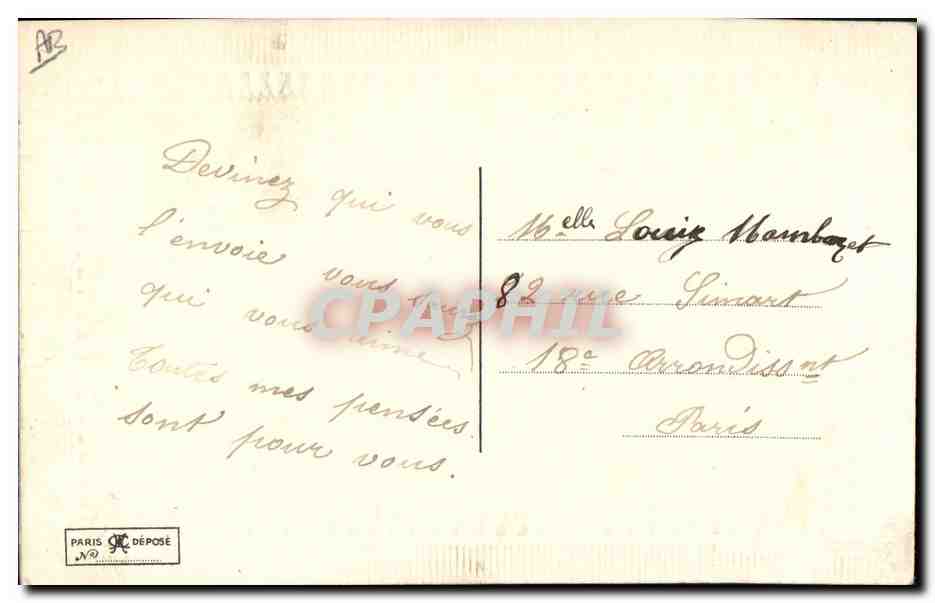 AB
Devinez qui vous
l'envoie vous
qui vous aime
Toutes mes pensées
sont pour vous.
Melle Louiz
82 rue Simart
18e Arrondissnt
Paris
CPAPHIL
PARIS DÉPOSÉ
No